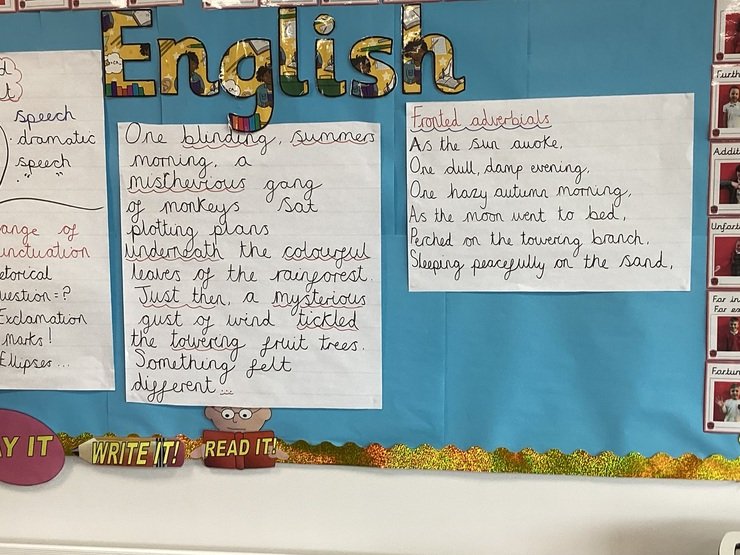 English
speech
dramatic
speech
range of
punctuation
question = ?
Exclamation
marks!
Ellipses ...
One blinding, summers
morning, a
mischevious gang
of monkeys sat
plotting plans
underneath the colourful
leaves of the rainforest.
Just then, a mysterious
gust of wind tickled
the towering fruit trees.
Something felt
different...
Fronted adverbials
As the sun awoke,
One dull, damp evening,
One hazy autumn morning,
As the moon went to bed,
Perched on the towering branch,
Sleeping peacefully on the sand,
IT
WRITE IT!
READ IT!